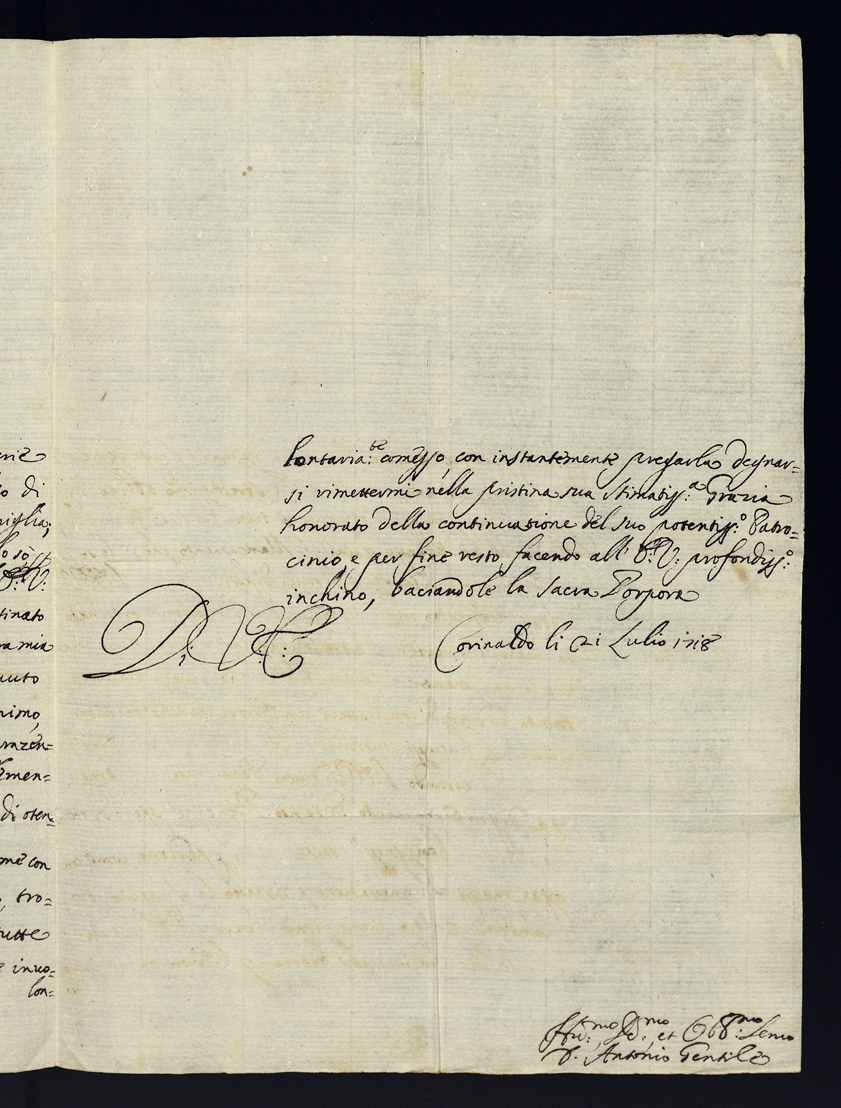 di
tinato
mia
uuto
nimo,
men=
di oten=
con
tro=
tutte
inuo=
lon=
lontaria:te comesso, con instantemente pregarla degnar=
si rimettermi nella pristina sua stimatiss:a Grazia
honorato della continuazione del suo potentiss:o Patro=
cinio, e per fine resto facendo all' profondiss:o
inchino, baciandole la Sacra Porpora
D: V: E:
Corinaldo li 21 Lulio 1718
et Obb:mo
D. Antonio Gentile